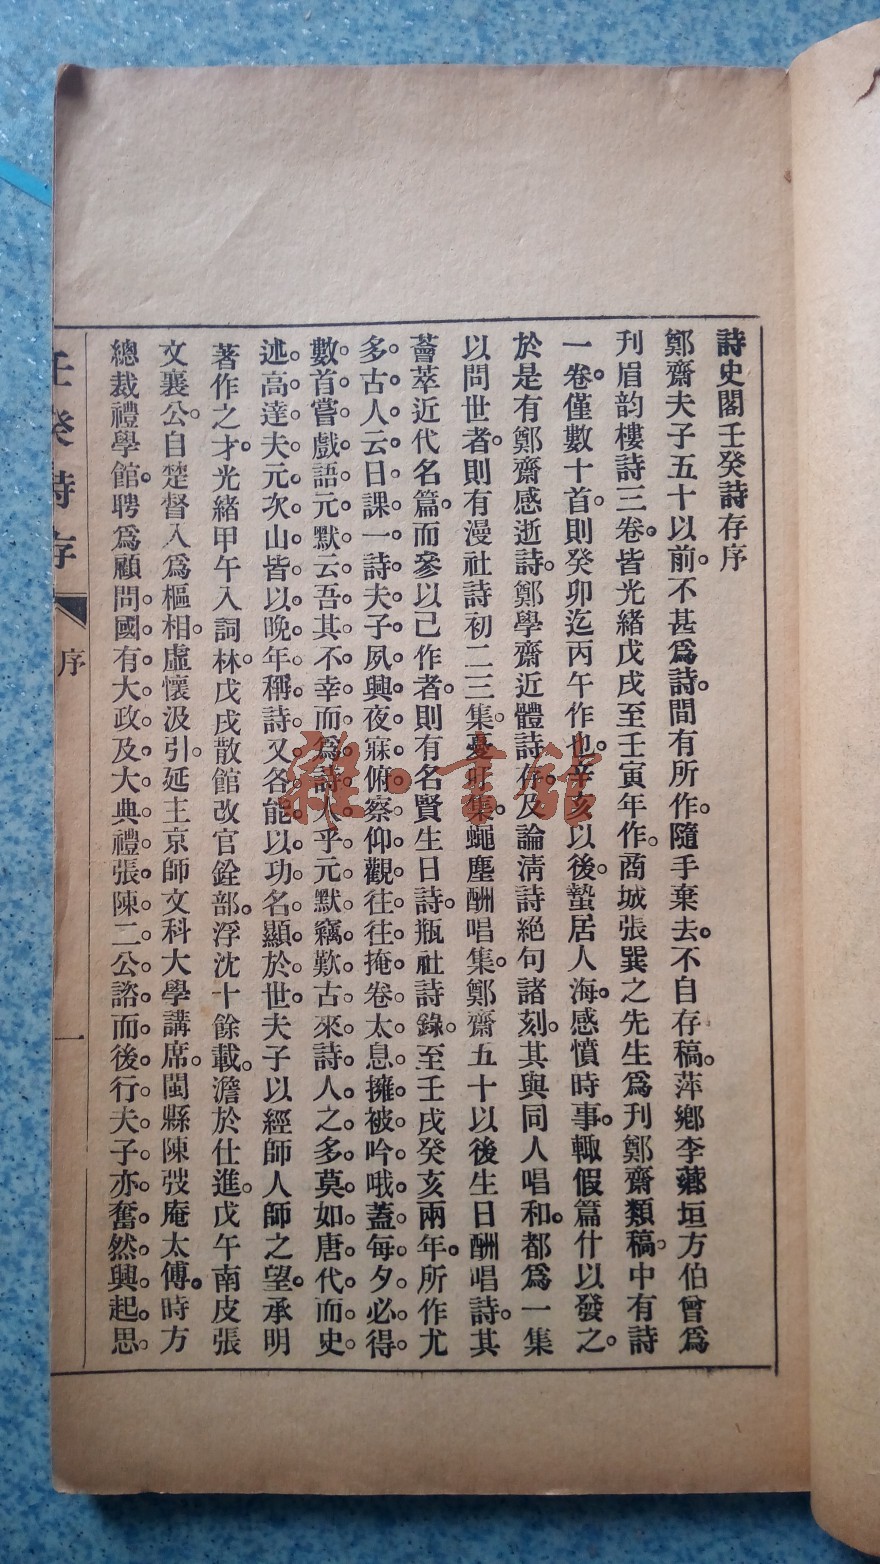 詩史閣壬癸詩存序
鄭齋夫子五十以前。不甚爲詩。間有所作。隨手棄去。不自存稿。萍鄉李蘊垣方伯曾爲
刋眉韵樓詩三卷。皆光緒戊戌至壬寅年作。商城張巽之先生爲刊鄭齋類稿。中有詩
一卷。僅數十首。則癸卯迄丙午作也。辛亥以後。蟄居人海。感憤時事。輒假篇什以發之。
於是有鄭齋感逝詩。鄭學齋近體詩存。及論淸詩絕句諸刻。其與同人唱和。都爲一集
以問世者。則有漫社詩初二三集。憂盱集。蠅塵酬唱集。鄭齋五十以後生日酬唱詩。其
薈萃近代名篇。而參以己作者。則有名賢生日詩。瓶社詩錄。至壬戌癸亥兩年。所作尤
多。古人云日課一詩。夫子夙興夜寐。俯察仰觀。往往掩卷太息。擁被吟哦。蓋每夕必得
數首。嘗戲語元默云。吾其不幸而爲詩人乎。元默竊歎古來詩人之多。莫如唐代。而史
述高達夫元次山。皆以晚年稱詩。又各能以功名顯於世。夫子以經師人師之望。承明
著作之才。光緒甲午入詞林。戊戌散館改官銓部。浮沈十餘載。澹於仕進。戊午南皮張
文襄公。自楚督入爲樞相。虛懷汲引。延主京師文科大學講席。閩縣陳弢庵太傅。時方
總裁禮學館。聘爲顧問。國有大政及大典禮。張陳二公諮而後行。夫子亦奮然興起。思
壬癸詩存
序
一
雜·書館